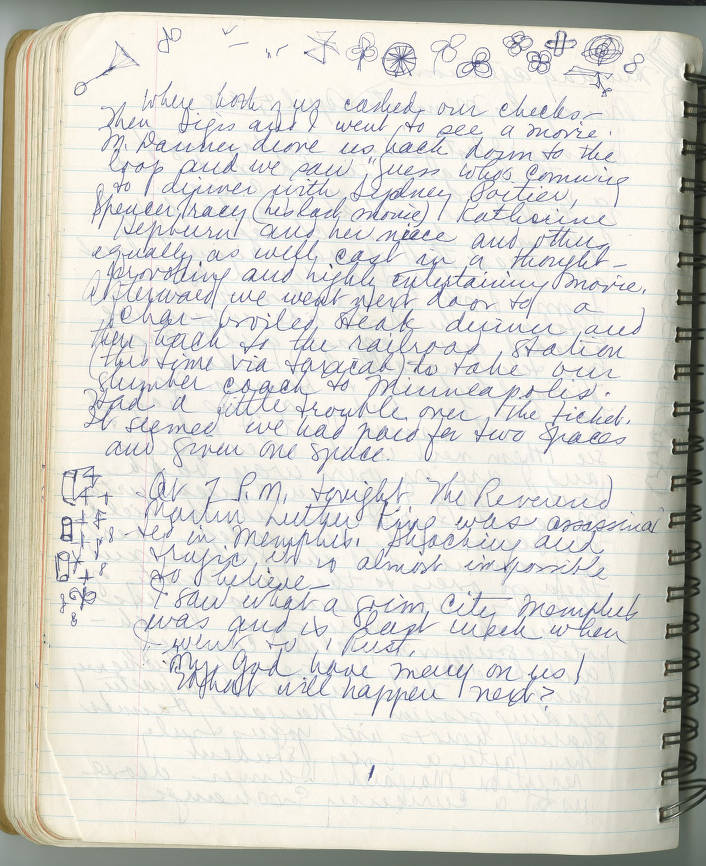 Where both of us cashed our checks.
Then Digs and I went to see a movie.
M. Danner drove us back down to the
loop and we saw "Guess Who's Comming
to dinner with Sydney Poitier,
Spencer Tracy (his last movie), Katharine
Hepburn and her niece and others
equally as well cast in a thought-
provoking and highly entertaining movie.
Afterward we went next door to a
Char-broiled steak dinner and
then back to the railroad station
(this time via taxicab) to take our
slumber coach to Minneapolis.
Had a little trouble over the ticket.
It seemed we had paid for two spaces
and given one space.
At 7 P.M. tonight The Reverend
Martin Luther King was assassina
ted in Memphis. Shocking and
tragic it is almost impossible
to believe
I saw what a grim City Memphis
was and is last week when
I went to Rust.
My God have mercy on us!
What will happen next?